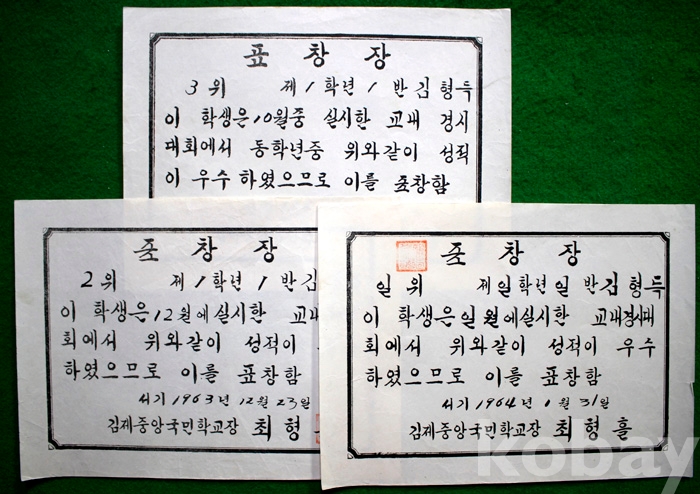 표창장
3위 제1학년1반김형득
이 학생은10월중 실시한 교내 경시
대회에서 동학년중 위와같이 성적
이 우수하였으므로 이를 표창함
표창장
2위 제1학년1반김
이 학생은12월에실시한 교내
회에서 위와같이 성적이
하였으므로 이를 표창함
서기1963년12월23일
김제중앙국민학교장 최형
표창장
일위 제일학년일반김형득
이 학생은일월에실시한 교내경시대
회에서 위와같이 성적이 우수
하였으므로 이를 표창함
서기1964년1월31일
김제중앙국민학교장 최형흘
kobay